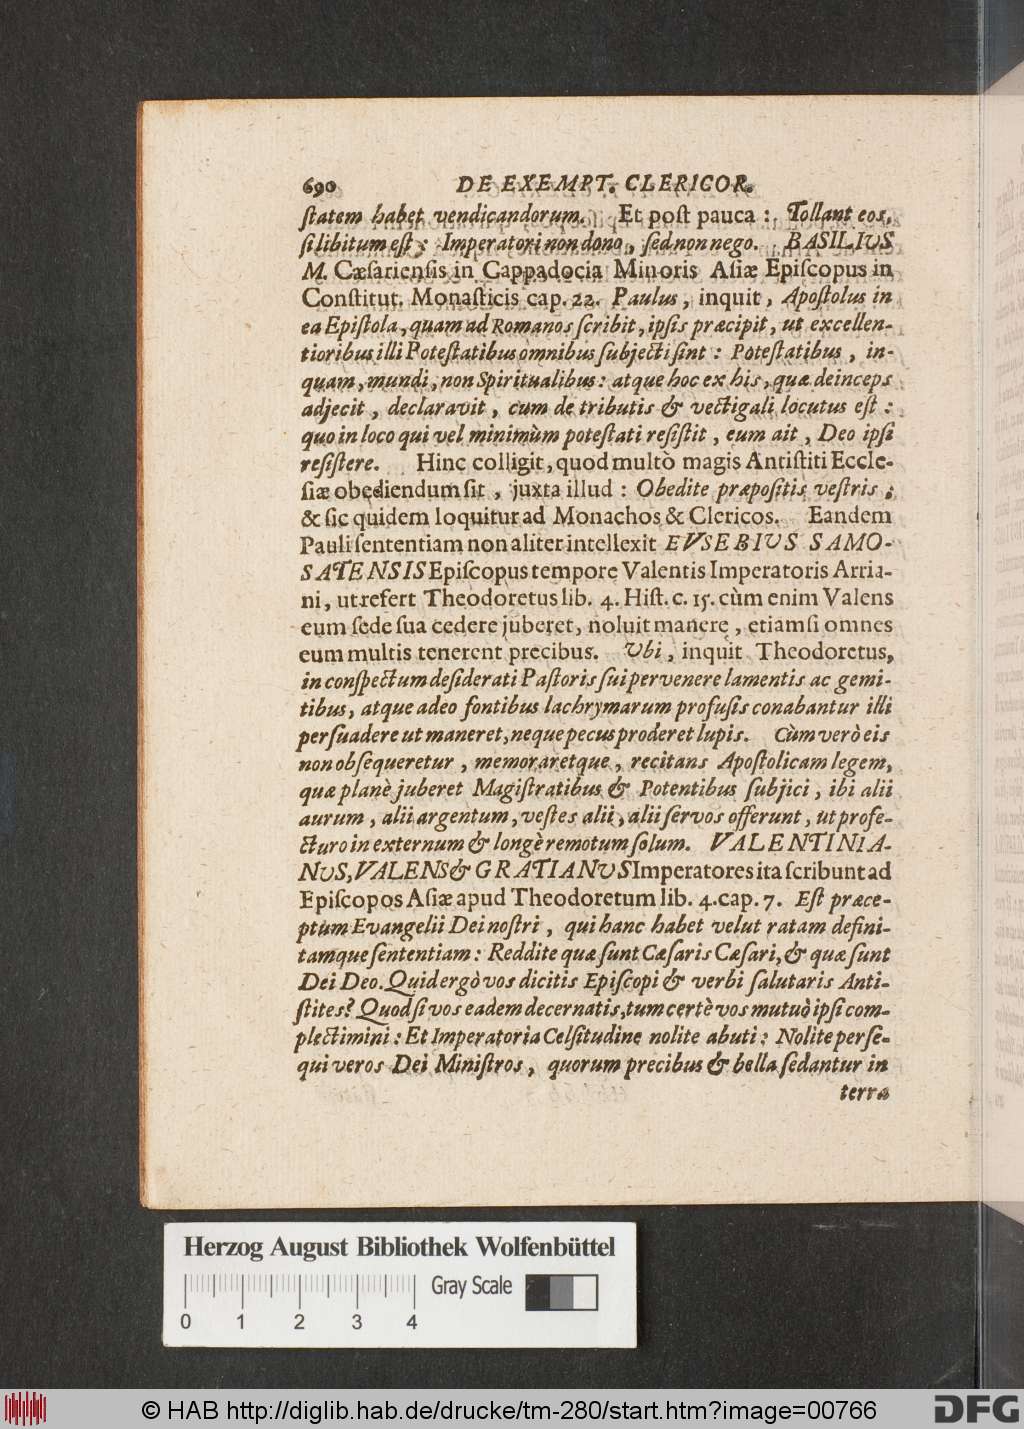 690 DE EXEMPT. CLERICOR.
ſtatem habet vendicandorum. Et poſt pauca: Tollant eos,
ſi libitum eſt; Imperatori non dono, ſed non nego. BASILIUS
M. Cæſarienſis in Cappadocia Minoris Aſiæ Epiſcopus in
Conſtitut. Monaſticis cap. 22. Paulus, inquit, Apoſtolus in
ea Epiſtola, quam ad Romanos ſcribit, ipſis præcipit, ut excellen-
tioribus illi Poteſtatibus omnibus ſubjecti ſint: Poteſtatibus, in-
quam, mundi, non Spiritualibus: atque hoc ex his, quæ deinceps
adjecit, declaravit, cum de tributis & vectigali locutus eſt:
quo in loco qui vel minimùm poteſtati reſiſtit, eum ait, Deo ipſi
reſiſtere. Hinc colligit, quod multò magis Antiſtiti Eccle-
ſiæ obediendum ſit, juxta illud: Obedite præpoſitis veſtris;
& ſic quidem loquitur ad Monachos & Clericos. Eandem
Pauli ſententiam non aliter intellexit EVSEBIUS SAMO-
SATENSIS Epiſcopus tempore Valentis Imperatoris Arria-
ni, ut refert Theodoretus lib. 4. Hiſt. c. 15. cùm enim Valens
eum ſede ſua cedere juberet, noluit manere, etiamſi omnes
eum multis tenerent precibus. Vbi, inquit Theodoretus,
in conſpectum deſiderati Paſtoris ſui pervenere lamentis ac gemi-
tibus, atque adeo fontibus lachrymarum profuſis conabantur illi
perſuadere ut maneret, neque pecus proderet lupis. Cùm verò eis
non obſequeretur, memoraretque, recitans Apoſtolicam legem,
quæ planè juberet Magiſtratibus & Potentibus ſubjici, ibi alii
aurum, alii argentum, veſtes alii, alii ſervos offerunt, ut profe-
cturo in externum & longè remotum ſolum. VALENTINIA-
NUS, VALENS & GRATIANUS Imperatores ita ſcribunt ad
Epiſcopos Aſiæ apud Theodoretum lib. 4. cap. 7. Eſt præce-
ptum Evangelii Dei noſtri, qui hanc habet velut ratam defini-
tamque ſententiam: Reddite quæ ſunt Cæſaris Cæſari, & quæ ſunt
Dei Deo. Quid ergò vos dicitis Epiſcopi & verbi ſalutaris Anti-
ſtites? Quod ſi vos eadem decernatis, tum certè vos mutuò ipſi com-
plectimini: Et Imperatoria Celſitudine nolite abuti: Nolite perſe-
qui veros Dei Miniſtros, quorum precibus & bella ſedantur in
terra
Herzog August Bibliothek Wolfenbüttel
Gray Scale
0 1 2 3 4
© HAB http://diglib.hab.de/drucke/tm-280/start.htm?image=00766
DFG